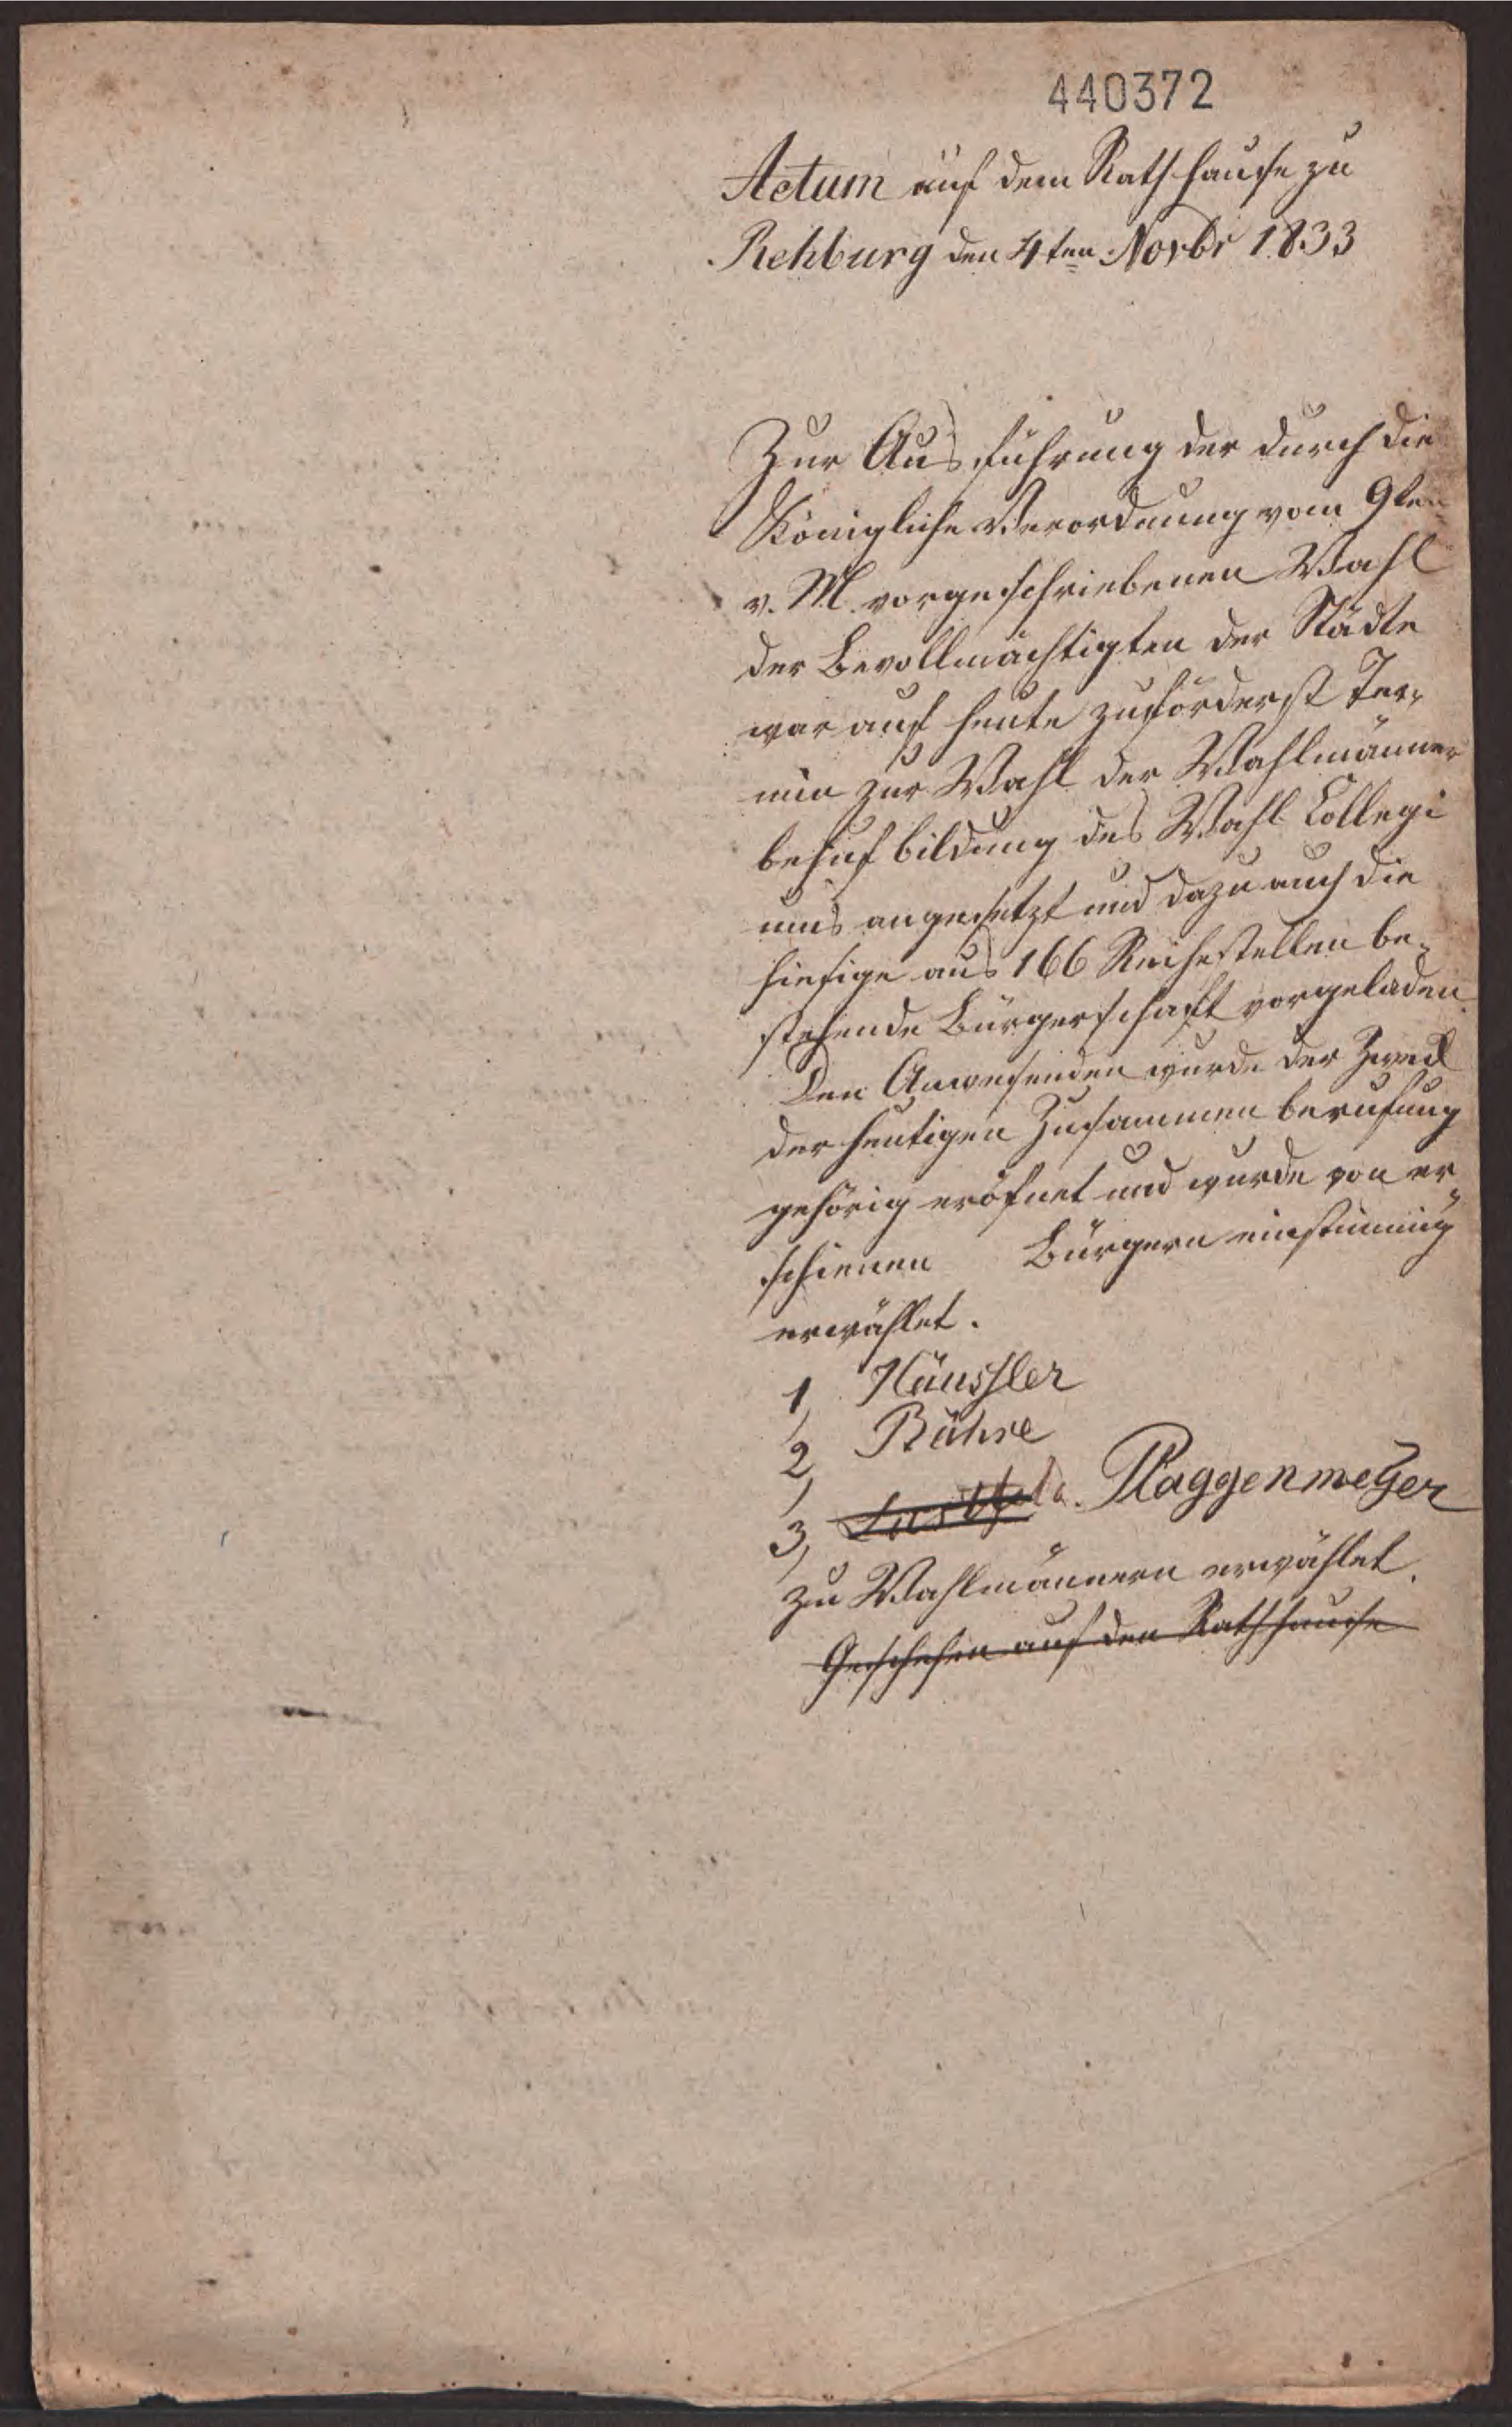 440372
Actum auf dem Rathhause zu
Rehburg den 4ten Novbr 1833
Zur Ausführung der durch die
Königliche Verordnung vom 9ten
v. M. vorgeschriebenen Wahl
der Bevollmächtigten der Städte
war auf heute zuförderst Ter-
min zur Wahl der Wahlmänner
behuf bildung des Wahl Collegi
ums angesetzt und dazu auch die
hiesige aus 166 Reihestellen be-
stehende Bürgerschaft vorgeladen
Den Anwesenden wurde der Zweck
der heutigen Zusammen berufung
gehörig eröfnet und wurde von er
schienen Bürgern einstimmig
erwählet.
1, Häussler
2, Bühre
3, Plaggenmeyer
zu Wahlmännern erwählet.
Geschehen auf den Rathhause